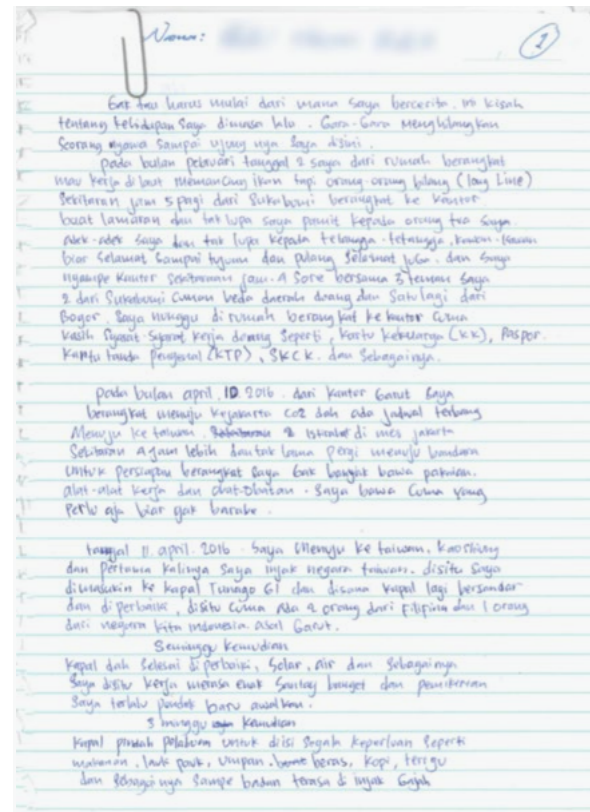 Nama:
1
Gak tau harus mulai dari mana saya bercerita. ini kisah
tentang kehidupan saya dimasa lalu. Gara-Gara Menghilangkan
Seorang nyawa sampai ujung nya saya disini.
pada bulan pebuari tanggal 2 saya dari rumah berangkat
mau kerja di laut memancing ikan tapi orang-orang bilang (long Line)
Sekitaran jam 5 pagi dari Sukabumi berangkat ke kantor
buat lamaran dan tak lupa saya pamit kepada orang tua saya.
adek-adek saya dan tak lupa kepada tetangga-tetangga, kawan-kawan
biar selamat sampai tujuan dan pulang selamat juga. dan saya
nyampe kantor sekitaraan jam. 4 Sore bersama 3 teman saya
2 dari Sukabumi Cuman beda daerah doang dan Satu lagi dari
Bogor. Saya nunggu di rumah berangkat ke kantor Cuma
kasih Syarat-Syarat kerja doang Seperti, kartu keluarga (KK), Paspor.
Kartu tanda pengenal (KTP), SKCK. dan Sebagainya.
pada bulan april, 10 2016. dari kantor Garut Saya
berangkat menuju kejakarta dah ada jadwal terbang
Menuju ke taiwan. istirahat di mes jakarta
Sekitaran 4 jam lebih dan tak lama pergi menuju bandara
untuk persiapan berangkat saya Gak banyak bawa pakaian.
alat-alat kerja dan obat-obatan. Saya bawa Cuma yang
Perlu aja biar gak barabe.
tanggal 11. april. 2016. Saya Menuju ke taiwan, kaoshiung
dan pertama kalinya Saya injak negara taiwan. disitu Saya
dimasukin ke kapal Tunago 61 dan disana kapal lagi bersandar
dan diperbaiki, disitu cuma Ada 2 orang dari Filipina dan 1 orang
dari negara kita indonesia. asal Garut.
Seminggu kemudian
Kapal dah selesai diperbaiki, Solar, air dan Sebagainya
Saya disitu kerja merasa enak Santay banget dan pemikiran
Saya terlalu pendek baru awalkan.
3 minggu kemudian
Kapal pindah pelabuan untuk diisi Segala keperluan Seperti
makanan, lauk pauk, umpan, beras, kopi, terigu
dan Sebagainya Sampe badan terasa di injak Gajah